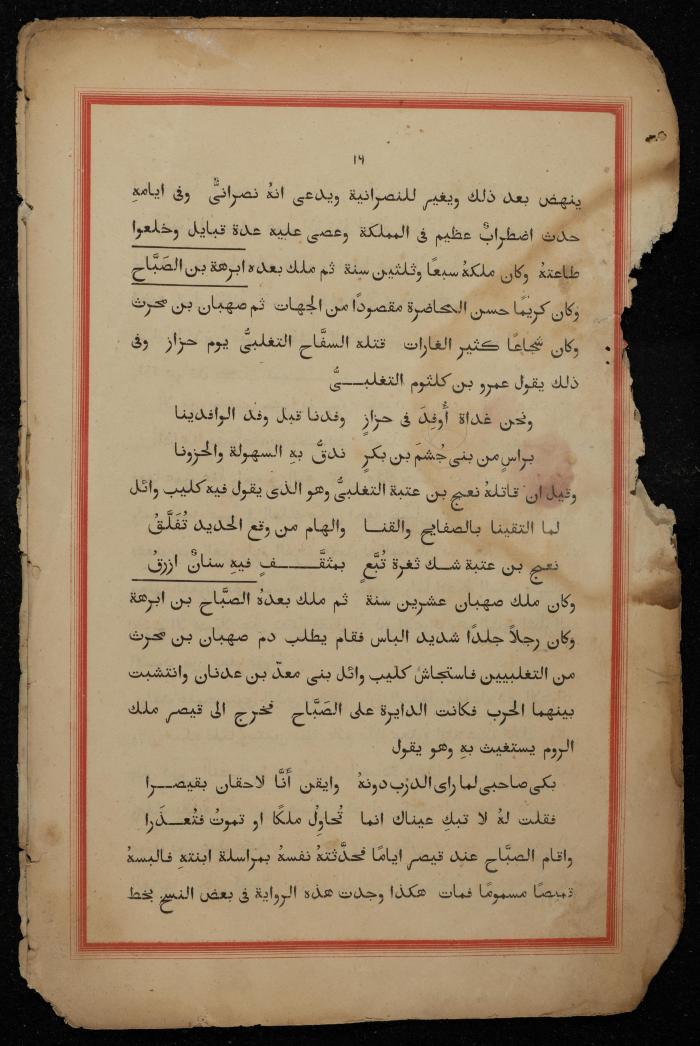 ١٦
ينهض بعد ذلك ويغير للنصرانية ويدعى انهُ نصرانىٌّ وفى ايامهِ
حدث اضطرابٌ عظيم فى المملكة وعصى عليه عدة قبايل وخلعوا
طاعتهُ وكان ملكهُ سبعًا وثلثين سنة ثم ملك بعده ابرهة بن الصَبَّاح
وكان كريمًا حسن المحاضرة مقصودًا من الجهات ثم صهبان بن محرث
وكان شجاعًا كثير الغارات قتله السفَّاح التغلبىُّ يوم حزاز وفى
ذلك يقول عمرو بن كلثوم التغلبــىُّ
ونحن غداة أُوقِدَ فى حزازٍ وفدنا قبل وفد الوافدينا
براسٍ من بنى جُشَمَ بن بكرٍ ندقُّ بهِ السهولة والحزونا
وقيل ان قاتلهُ نعيج بن عتبة التغلبىُّ وهو الذى يقول فيه كليب وائل
لما التقينا بالصفايح والقنــا والهام من وقع الحديد تُفَلَّقُ
نعيج بن عتبة شــك ثغرة تُبَّعٍ بمثقَّــــفٍ فيهِ سنانٌ ازرقُ
وكان ملك صهبان عشرين سنة ثم ملك بعدهُ الصبَّاح بن ابرهة
وكان رجلاً جلدًا شديد الباس فقام يطلب دم صهبان بن محرث
من التغلبيين فاستجاش كليب وائل بنى معدّ بن عدنان وانتشبت
بينهما الحرب فكانت الدايرة على الصَبَّاح فخرج الى قيصر ملك
الروم يستغيث بهِ وهو يقول
بكى صاحبى لما راى الدرب دونهُ وايقن أنَّا لاحقان بقيصــرا
فقلت لهُ لا تبكِ عيناك انما نُحاوِلُ ملكًا او نموتُ فنُعــذَرا
واقام الصبَّاح عند قيصر ايامًا فحدَّثتهُ نفسهُ بمراسلة ابنتهِ فالبسهُ
قميصًا مسمومًا فمات هكذا وجدت هذه الرواية فى بعض النسخ بخط